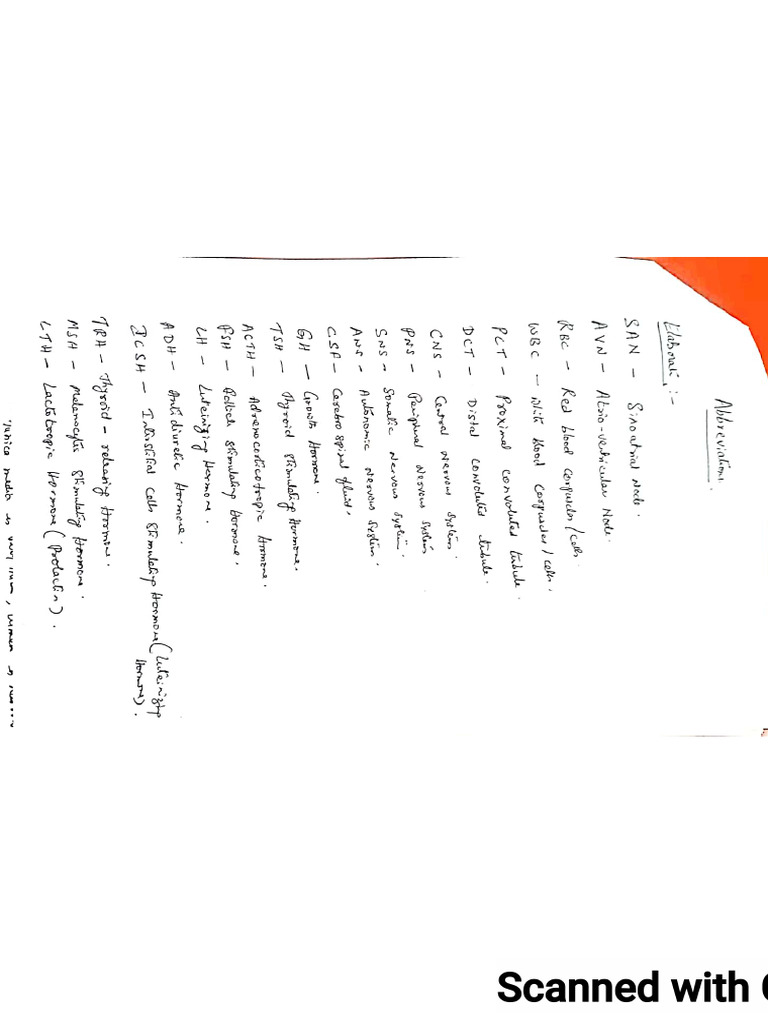 Abbreviations.
Elaborate :-
SAN - Sinoatrial Node.
AVN - Atrio-ventricular Node.
RBC - Red blood corpuscles/cells.
WBC - White blood corpuscles/cells.
PCT - Proximal convoluted tubule.
DCT - Distal convoluted tubule.
CNS - Central Nervous System.
PNS - Peripheral Nervous System
SNS - Somatic Nervous System.
ANS - Autonomic Nervous System.
CSF - Cerebrospinal fluid.
GH - Growth Hormone.
TSH - Thyroid Stimulating Hormone.
ACTH - Adrenocorticotropic Hormone.
FSH - Follicle Stimulating Hormone.
LH - Luteinizing Hormone.
ADH - Antidiuretic Hormone.
ICSH - Interstitial Cells Stimulating Hormone (Luteinizing
Hormone).
TRH - Thyroid-releasing Hormone.
MSH - Melanocytes Stimulating Hormone.
LTH - Lactotropic Hormone (Prolactin).
Scanned with